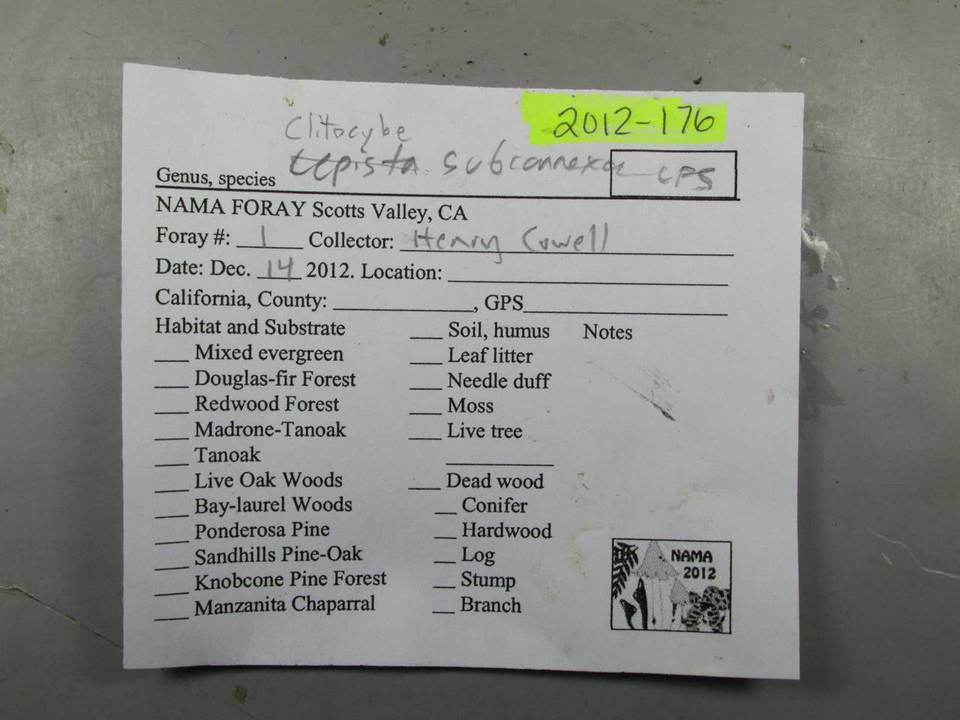 2012-176
Clitocybe
Genus, species Lepista subconnexa CPS
NAMA FORAY Scotts Valley, CA
Foray #: 1 Collector: Henry Cowell
Date: Dec. 14 2012. Location: ___
California, County: ___, GPS___
Habitat and Substrate ___ Soil, humus Notes
___ Mixed evergreen ___ Leaf litter
___ Douglas-fir Forest ___ Needle duff
___ Redwood Forest ___ Moss
___ Madrone-Tanoak ___ Live tree
___ Tanoak ___
___ Live Oak Woods ___ Dead wood
___ Bay-laurel Woods __ Conifer
___ Ponderosa Pine __ Hardwood
___ Sandhills Pine-Oak __ Log
___ Knobcone Pine Forest __ Stump
___ Manzanita Chaparral __ Branch
NAMA
2012